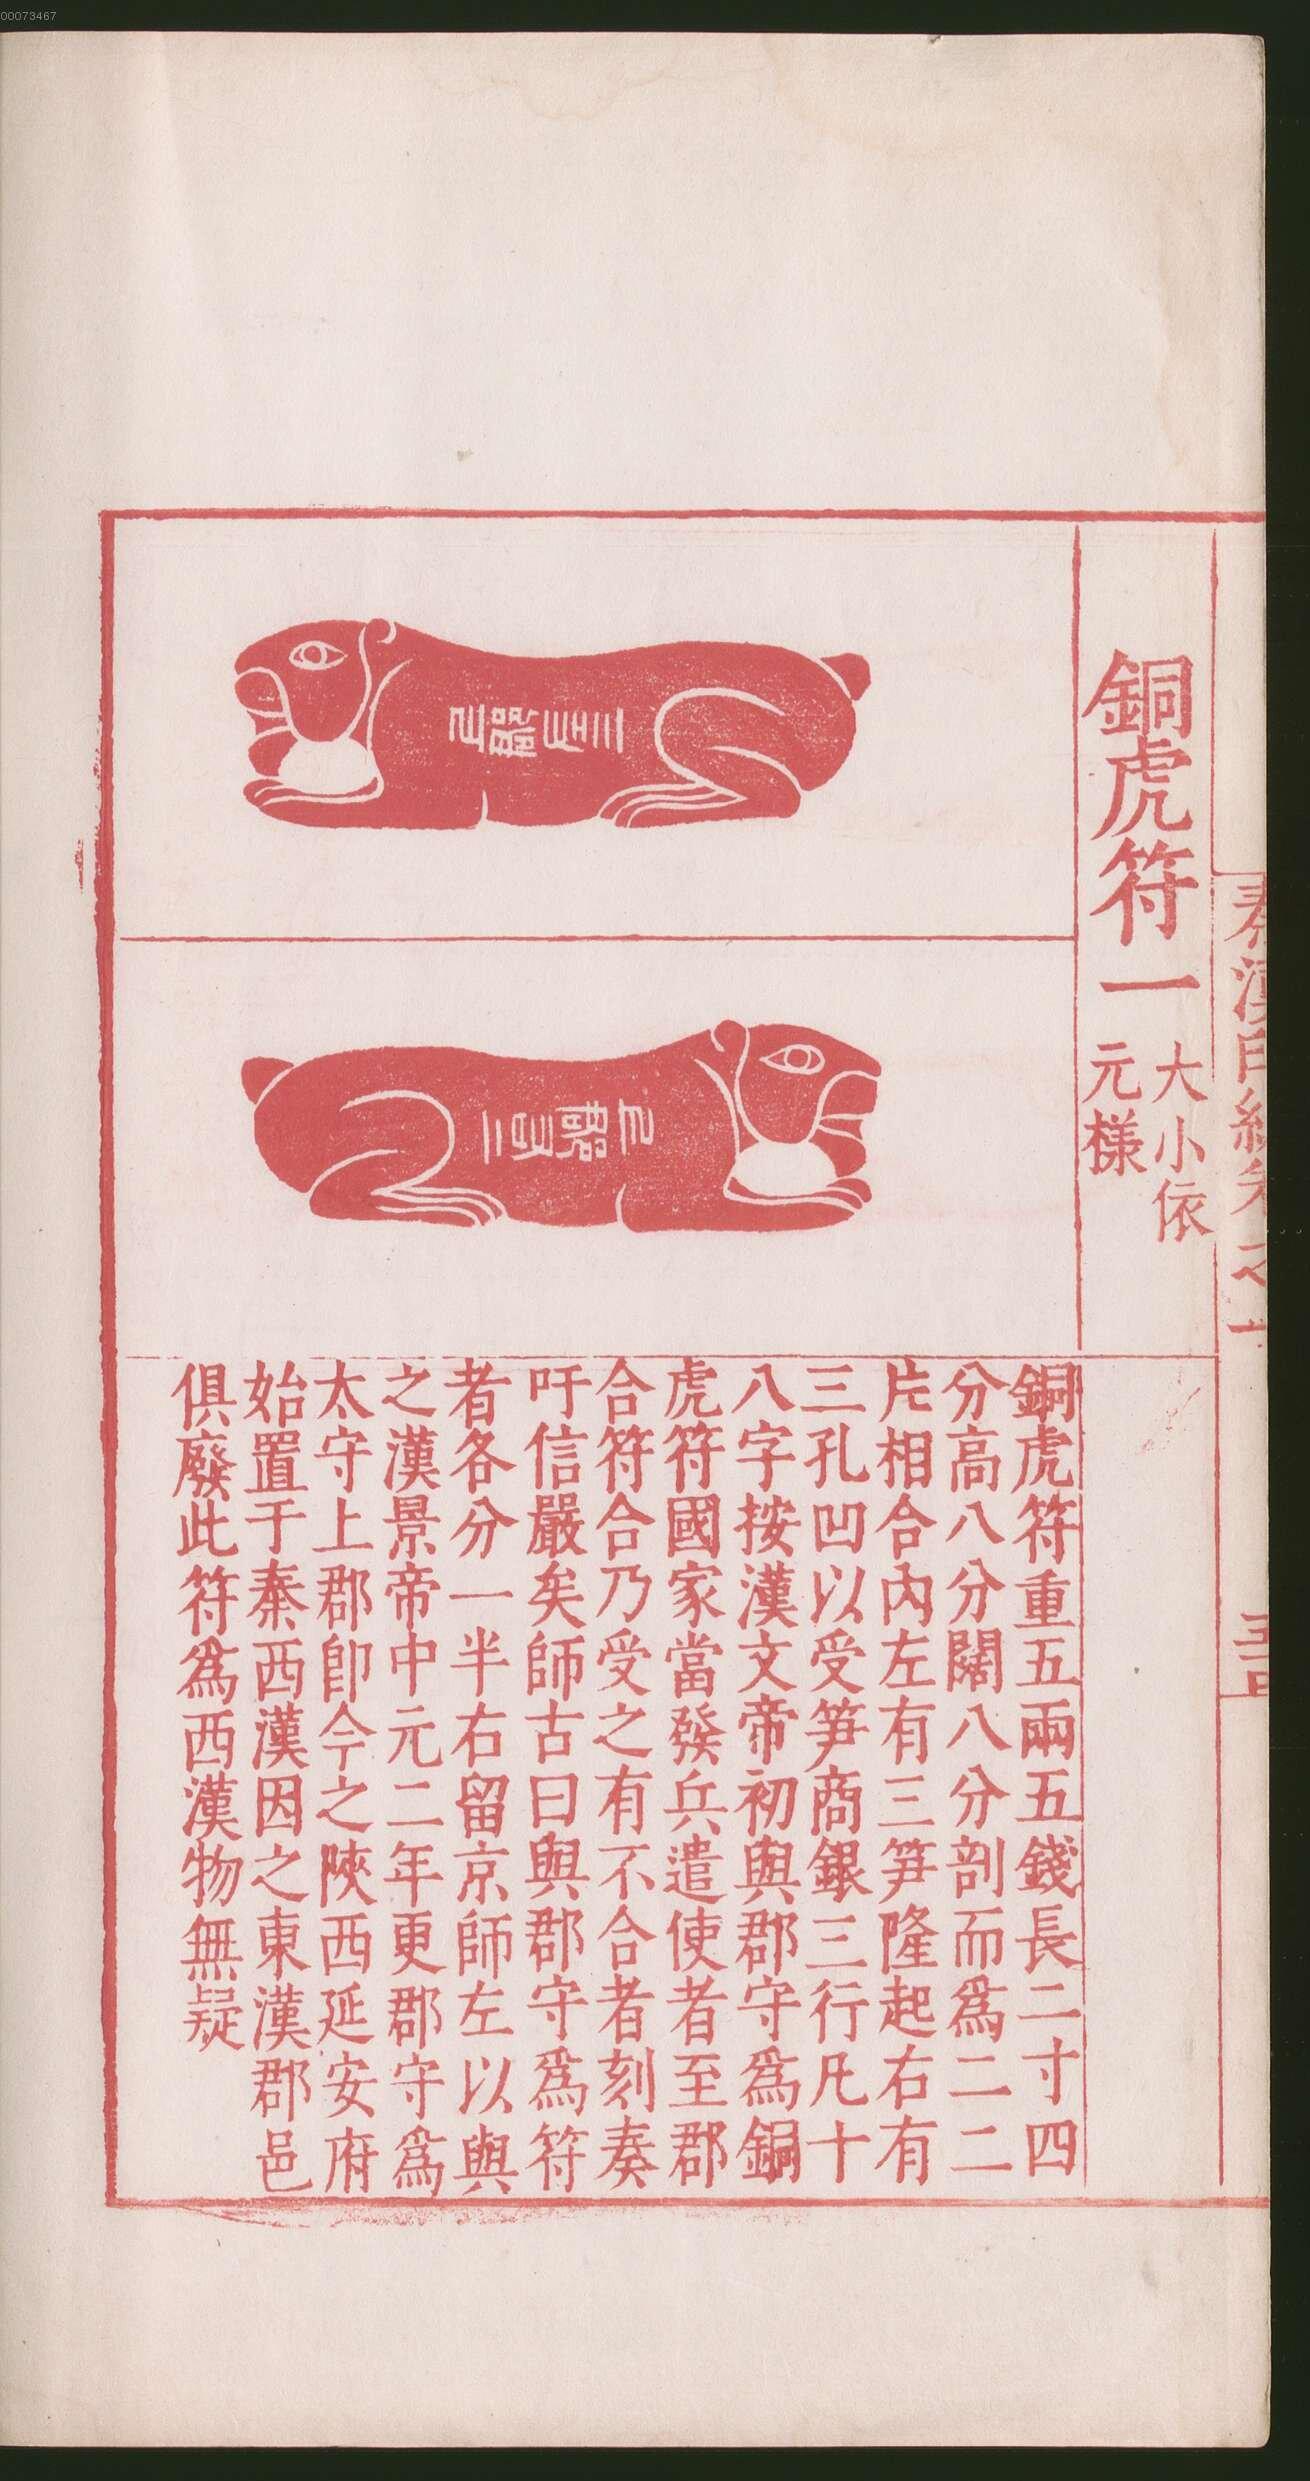 00073467
銅虎符一
大小依
元様
銅虎符重五兩五錢長二寸四
分高八分闊八分剖而為二二
片相合內左有三笋隆起右有
三孔凹以受笋商銀三行凡十
八字按漢文帝初與郡守為銅
虎符國家當發兵遣使者至郡
合符合乃受之有不合者刻奏
吁信嚴矣師古曰與郡守為符
者各分一半右留京師左以與
之漢景帝中元二年更郡守為
太守上郡即今之陝西延安府
始置于秦西漢因之東漢郡邑
俱廢此符為西漢物無疑